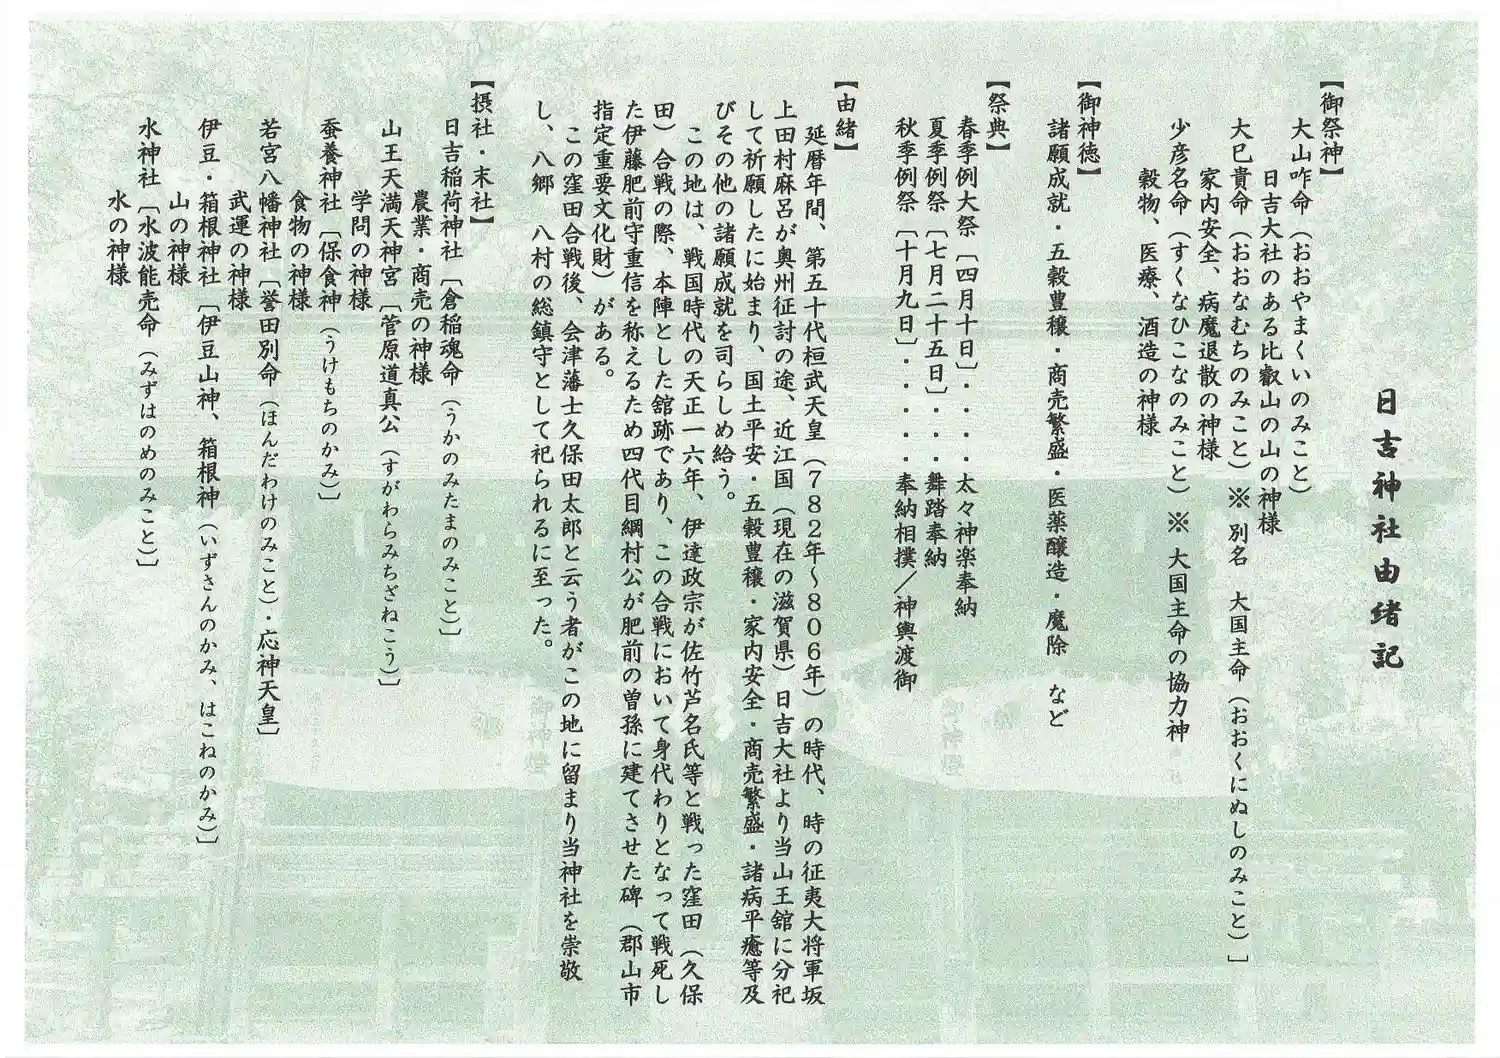 日吉神社由緒記
【御祭神】
大山咋命（おおやまくいのみこと）
日吉大社のある比叡山の山の神様
大己貴命（おおなむちのみこと）※別名　大国主命（おおくにぬしのみこと）］
家内安全、病魔退散の神様
少彦名命（すくなひこなのみこと）※　大国主命の協力神
穀物、医療、酒造の神様
【御神徳】
諸願成就・五穀豊穣・商売繁盛・医薬醸造・魔除　など
【祭典】
春季例大祭［四月十日］・・・・太々神楽奉納
夏季例祭［七月二十五日］・・・舞踏奉納
秋季例祭［十月九日］・・・・・奉納相撲／神輿渡御
【由緒】
延暦年間、第五十代桓武天皇（782年～806年）の時代、時の征夷大将軍坂
上田村麻呂が奥州征討の途、近江国（現在の滋賀県）日吉大社より当山王舘に分祀
して祈願したに始まり、国土平安・五穀豊穣・家内安全・商売繁盛・諸病平癒等及
びその他の諸願成就を司らしめ給う。
この地は、戦国時代の天正一六年、伊達政宗が佐竹芦名氏等と戦った窪田（久保
田）合戦の際、本陣とした舘跡であり、この合戦において身代わりとなって戦死し
た伊藤肥前守重信を称えるため四代目綱村公が肥前の曽孫に建てさせた碑（郡山市
指定重要文化財）がある。
この窪田合戦後、会津藩士久保田太郎と云う者がこの地に留まり当神社を崇敬
し、八郷　八村の総鎮守として祀られるに至った。
【摂社・末社】
日吉稲荷神社［倉稲魂命（うかのみたまのみこと）］
農業・商売の神様
山王天満天神宮［菅原道真公（すがわらみちざねこう）］
学問の神様
蚕養神社［保食神（うけもちのかみ）］
食物の神様
若宮八幡神社［誉田別命（ほんだわけのみこと）・応神天皇］
武運の神様
伊豆・箱根神社［伊豆山神、箱根神（いずさんのかみ、はこねのかみ）］
山の神様
水神社［水波能売命（みずはのめのみこと）］
水の神様